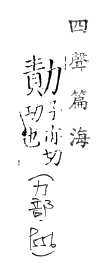 四聲篇海
勣子亦切
功也
(力部)